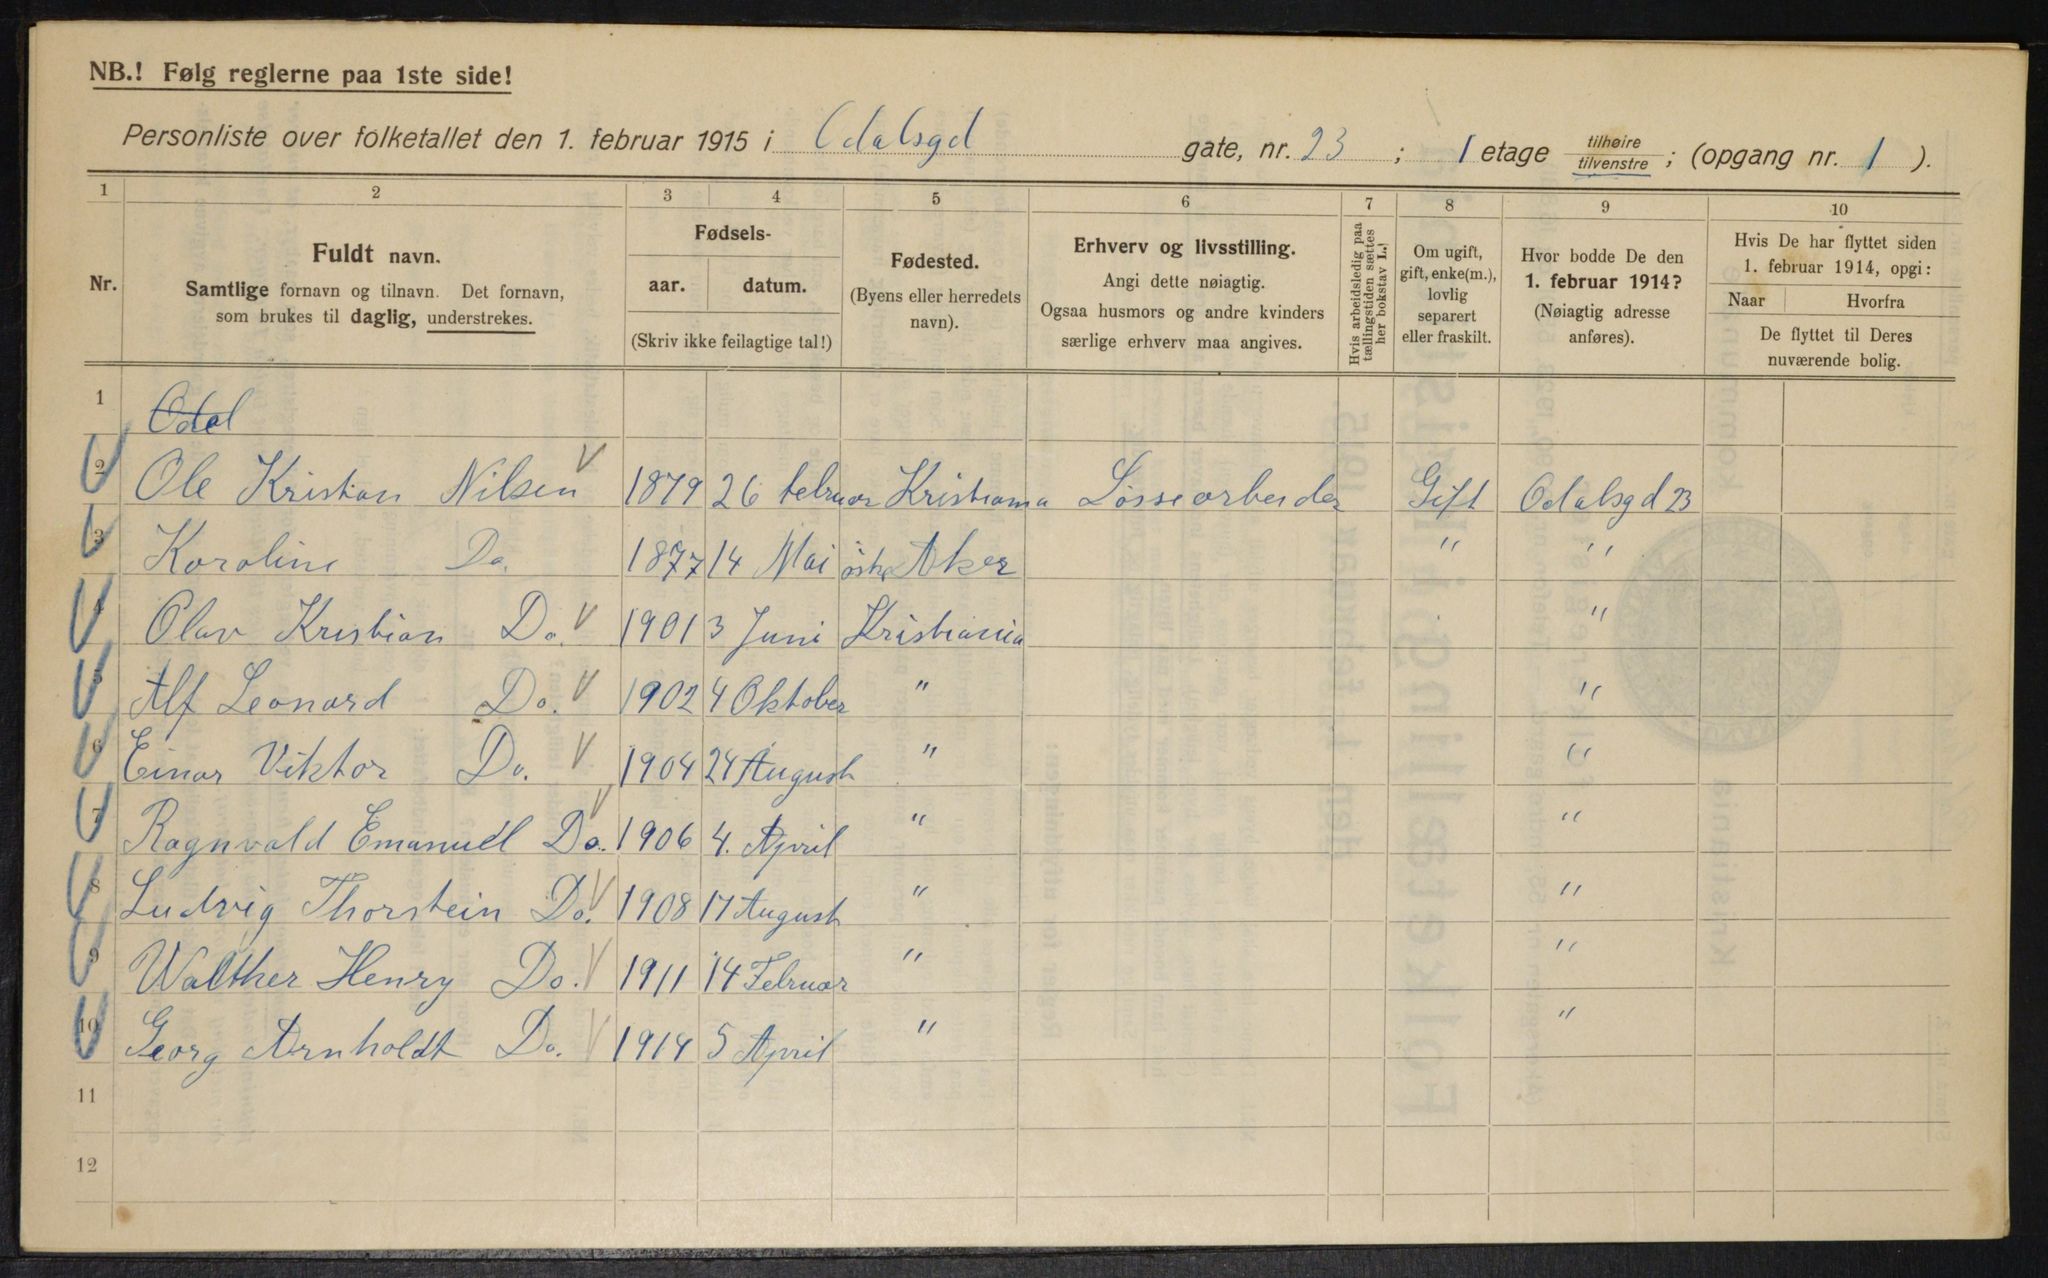 NB.! Følg reglerne paa 1ste side!
Personliste over folketallet den 1. februar 1915 i Odalsgd gate, nr. 23 ; 1 etage tilhøire tilvenstre ; (opgang nr. 1 ).
1 2 3 4 5 6 7 8 9 10
Nr.
Fuldt navn.
Samtlige fornavn og tilnavn. Det fornavn,
som brukes til daglig, understrekes.
Fødsels-
aar. datum.
(Skriv ikke feilagtige tal!)
Fødested.
(Byens eller herredets
navn).
Erhverv og livsstilling.
Angi dette nøiagtig.
Ogsaa husmors og andre kvinders
særlige erhverv maa angives.
Hvis arbeidsledig paa
tællingstiden sættes
her bokstav L.!
Om ugift,
gift, enke(m.),
lovlig
separert
eller fraskilt.
Hvor bodde De den
1. februar 1914?
(Nøiagtig adresse
anføres).
Hvis De har flyttet siden
1. februar 1914, opgi:
Naar Hvorfra
De flyttet til Deres
nuværende bolig.
1 Odal
2 Ole Kristian Nilsen 1879 26 februar Kristiania Løssearbeider Gift Odalsgd 23
3 Karoline Do. 1877 14 Mai Aker " "
4 Olav Kristian Do. 1901 3 Juni Kristiania "
5 Alf Leonard Do. 1902 4 Oktober " "
6 Einar Viktor Do. 1904 24 August " "
7 Ragnvald Emanuel Do. 1906 4. April " "
8 Ludvig Thorstein Do. 1908 17 August " "
9 Walther Henry Do. 1911 14 Februar " "
10 Georg Arnholdt Do. 1914 5 April " "
11
12